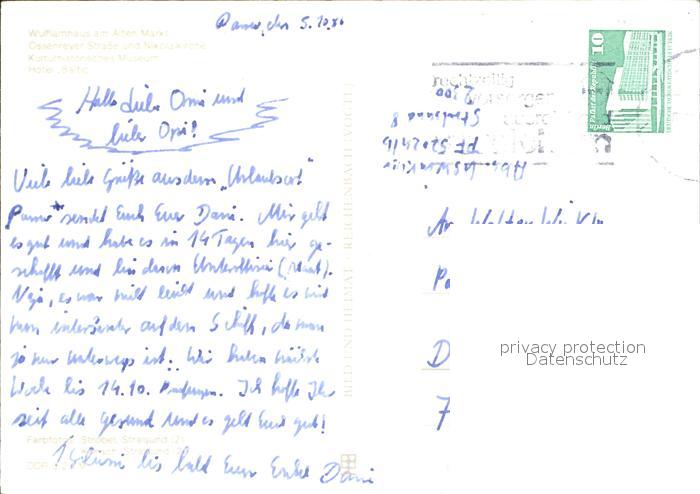 Wulflamhaus am Alten Markt
Ossenreyer Straße und Nikolaikirche
Kulturhistorisches Museum
Hotel „Baltic"
Parow, den 5.10.86
Hallo liebe Omi und
lieber Opi!
Viele liebe Grüße aus dem „Urlaubsort
Parow" sendet Euch Euer Dani. Mir geht
es gut und habe es in 14 Tagen hier ge-
schafft und bin dann
Naja, es war nicht leicht und hoffe es wird
nun interessanter auf dem Schiff, da man
ja nur unterwegs ist. Wir haben nächste
Woche bis 14.10. Prüfungen. Ich hoffe Ihr
seit alle gesund und es geht Euch gut!
Tschüssi bis bald Euer Enkel Dani
Farbfotos: Ströbel, Stralsund (2)
Stralsund
DDR
BILD UND HEIMAT REICHENBACH
rechtzeitig
Abs.
PF 52024/6
Stralsund 8
2300
10
Palast der Republik
Berlin
An Walter
D
7
privacy protection
Datenschutz